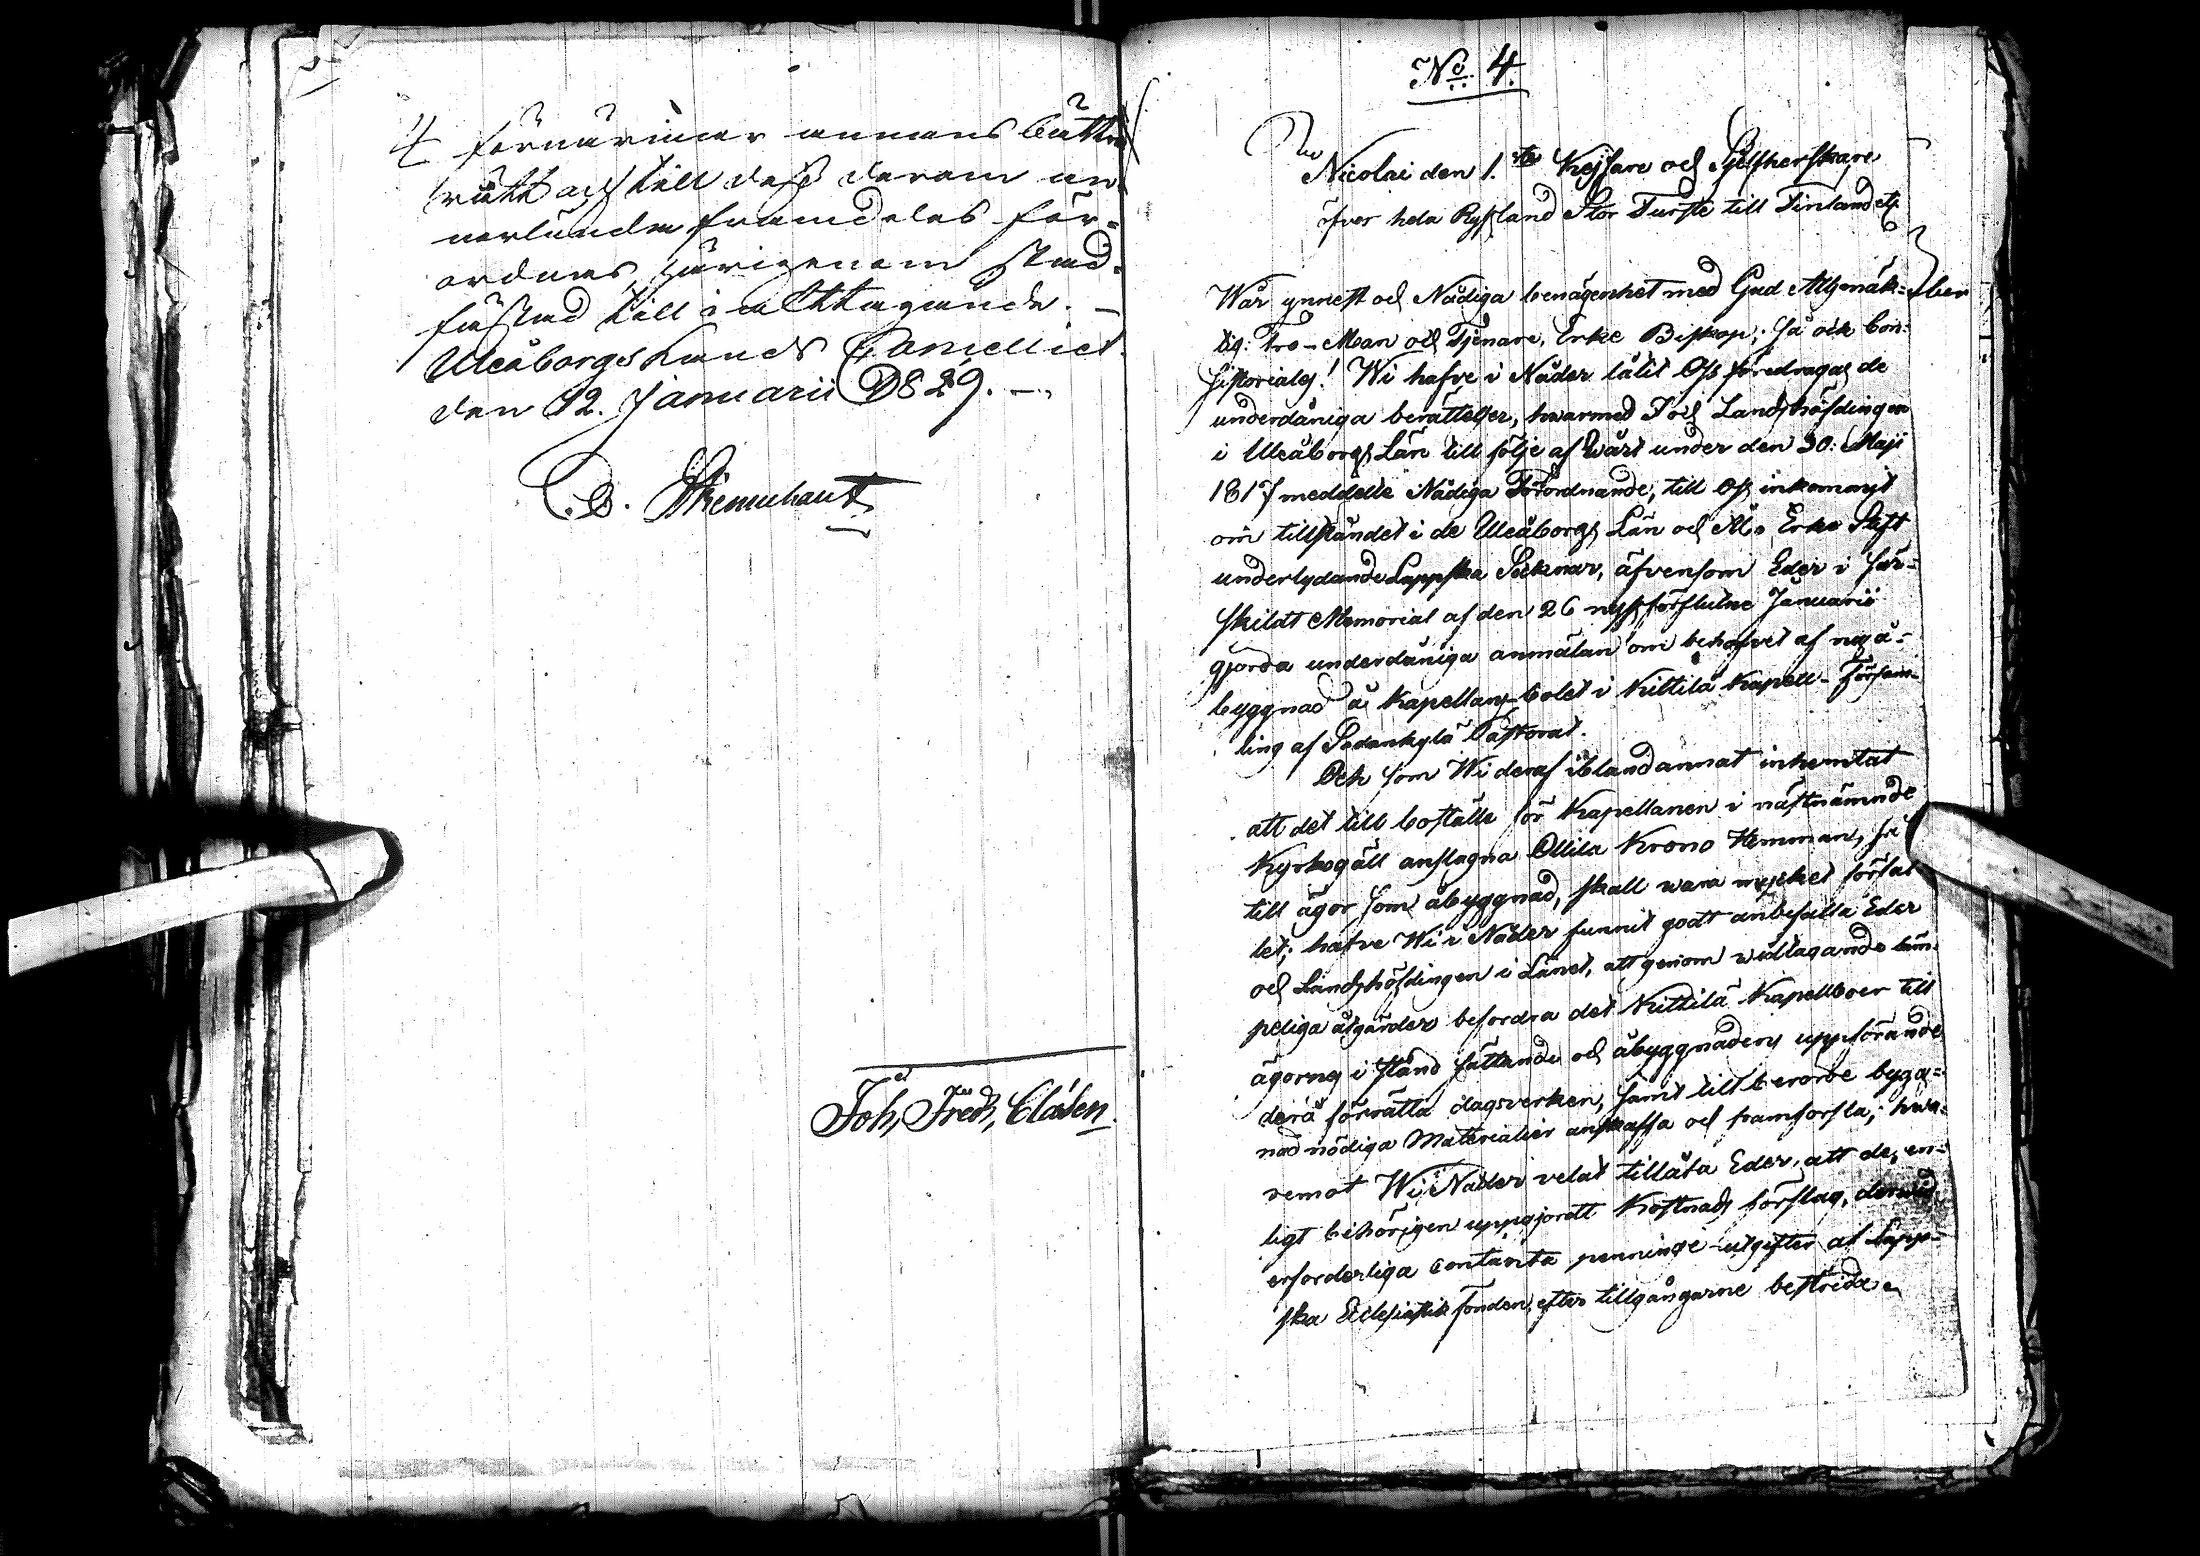 förnärmar annans bättre
rätt och till dess derom an-
norlunda framdeles för-
ordnas, härigenom stad-
fästad till iakttagande. —
Uleåborgs Lands Cancelliet
den 12. Januarii 1829. —
Joh, Fredr, Clasen.
No 4.
Nicolai den 1.ste Kejsare och Sjelfherskare
öfver hela Ryssland Stor Furste till Finland etc
Wår ynnest och Nådiga benägenhet med Gud Allsmäk-
tig: Tro-Man och Tjenare, Erke Biskop; så ock Con-
sistoriales! Wi hafve i Nåder låtit Oss föredragas de
underdåniga berättelser, hwarmed I och Landshöfdingen
i Uleåborgs Län till följe af Wårt under den 30: Maji
1817 meddelte Nådiga Förordnande, till Oss inkommit
om tillståndet i de Uleåborgs Län och Åbo Erke Stift
underlydande Lappska Soknar, äfvensom Eder i sär-
skildt Memorial af den 26 nystförflutne Januarii
gjorda underdåniga anmälan om behofvet af ny å-
byggnad å Kapellans-bolet i Kittilä Kapell-Försam-
ling af Sodankylä Pastorat.
Och som Wi deraf ibland annat inhemtat
att det till boställe för Kapellanen i nästnämnde
Kyrkogäll anslagna Ollila Krono Hemman, så
till ägor som åbyggnad, skall wara mycket förfal-
let; hafve Wi i Nåder funnit godt anbefalla Eder
och Landshöfdingen i Länet, att genom widtagande läm-
peliga åtgärder befordra det Kittilä Kapellboer till
ägornes i stånd sättande och åbyggnadens uppförande
derå förrätta dagsverken, samt till berörde bygg-
nad nödiga Materialier anskaffa och framforsla; hwa-
remot Wi i Nåder velat tillåta Eder, att de, en-
ligt behörigen uppgjordt Kostnads förslag, derwid
erforderliga contanta penninge-utgifter af Lapp-
ska Ecclesiastik fonden, efter tillgångarne bestridas